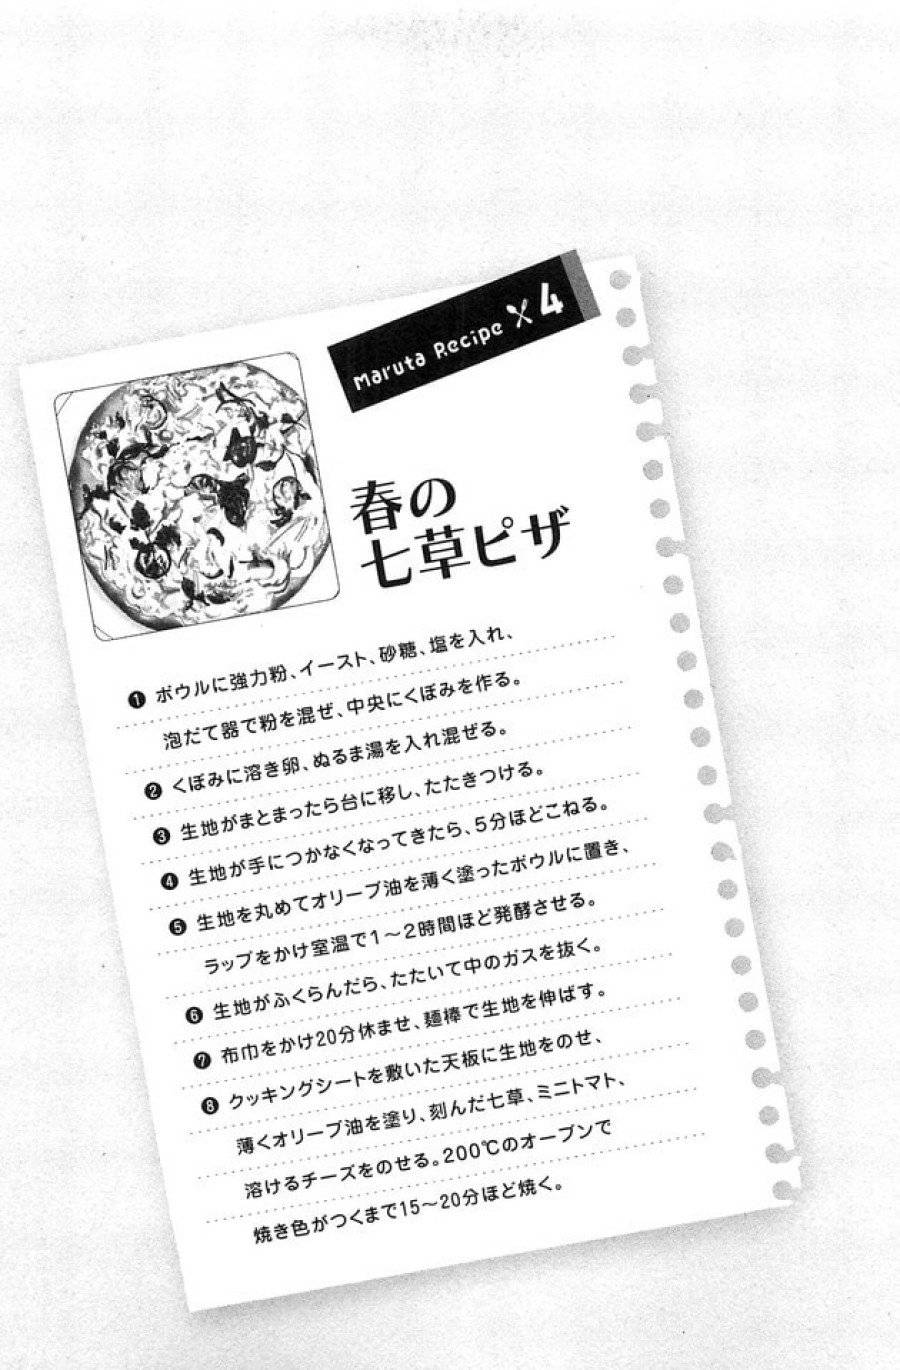 Maruta Recipe 4
春の
七草ピザ
❶ ボウルに強力粉、イースト、砂糖、塩を入れ、
泡だて器で粉を混ぜ、中央にくぼみを作る。
❷ くぼみに溶き卵、ぬるま湯を入れ混ぜる。
❸ 生地がまとまったら台に移し、たたきつける。
❹ 生地が手につかなくなってきたら、5分ほどこねる。
❺ 生地を丸めてオリーブ油を薄く塗ったボウルに置き、
ラップをかけ室温で1〜2時間ほど発酵させる。
❻ 生地がふくらんだら、たたいて中のガスを抜く。
❼ 布巾をかけ20分休ませ、麺棒で生地を伸ばす。
❽ クッキングシートを敷いた天板に生地をのせ、
薄くオリーブ油を塗り、刻んだ七草、ミニトマト、
溶けるチーズをのせる。200℃のオーブンで
焼き色がつくまで15〜20分ほど焼く。